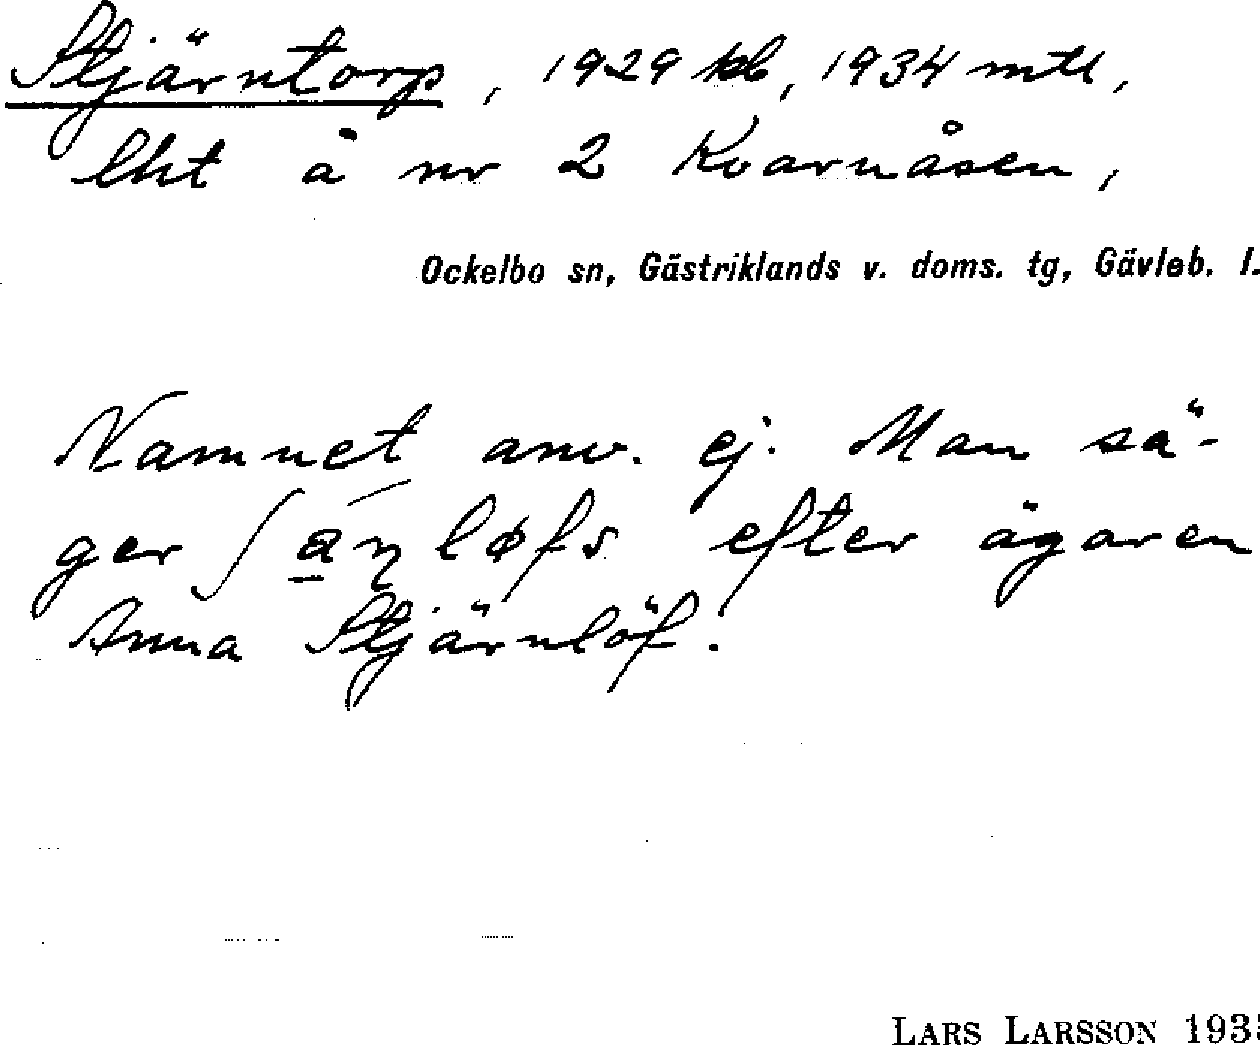 Stjärntorp, 1929 kb, 1934 mtl,
lht å nr 2 Kvarnåsen,
Ockelbo sn, Gästriklands v. doms. tg, Gävleb. l.
Namnet anv. ej. Man sä-
ger efter ägaren
Anna Stjärnlöf.
LARS LARSSON